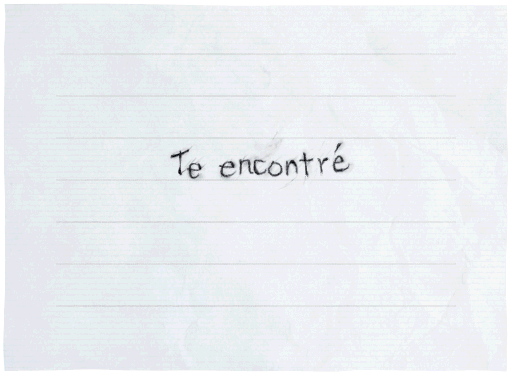 Te encontré